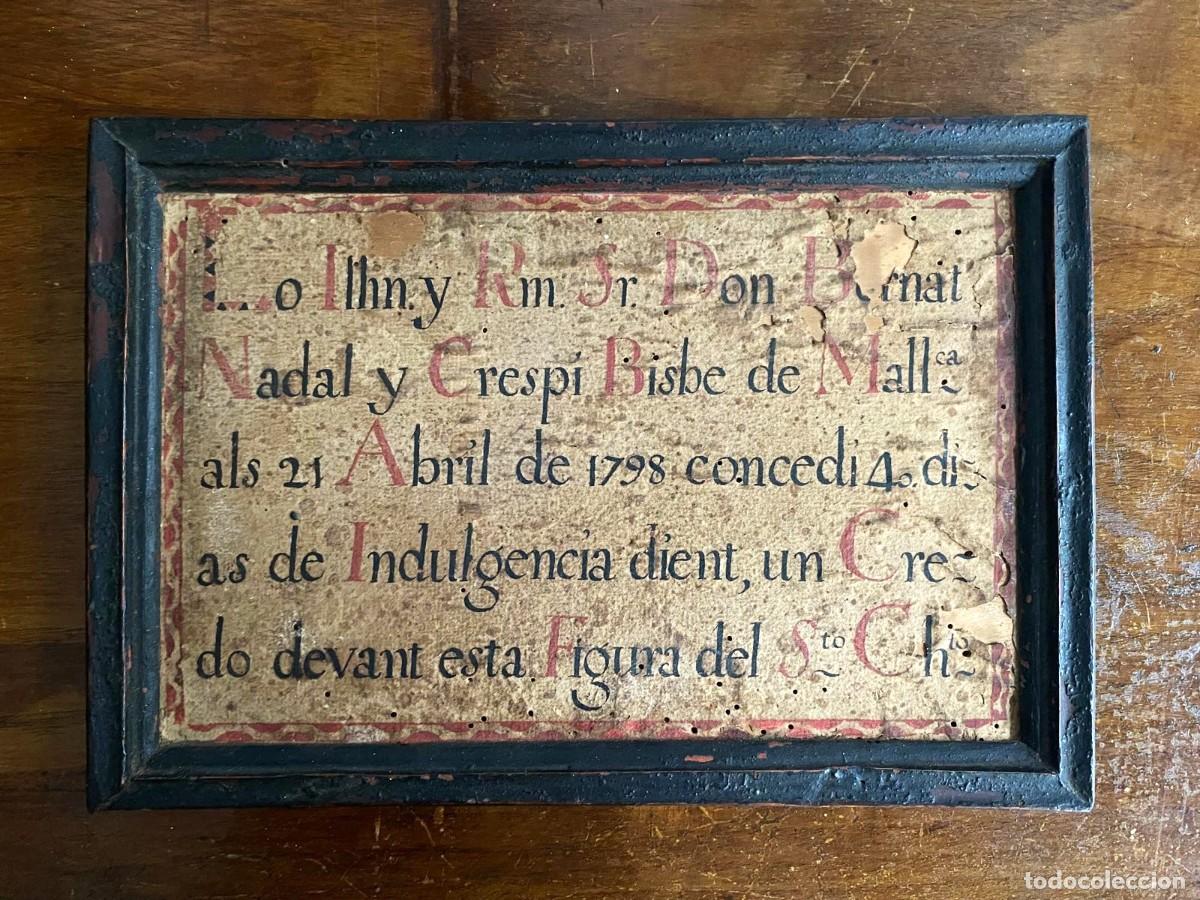 Lo Illm. y Rm. Sr. Don Bernat
Nadal y Crespi Bisbe de Mall.ca
als 21 Abril de 1798 concedi 40 di-
as de Indulgencia dient, un Cre-
do devant esta Figura del Sto Chto
todocoleccion